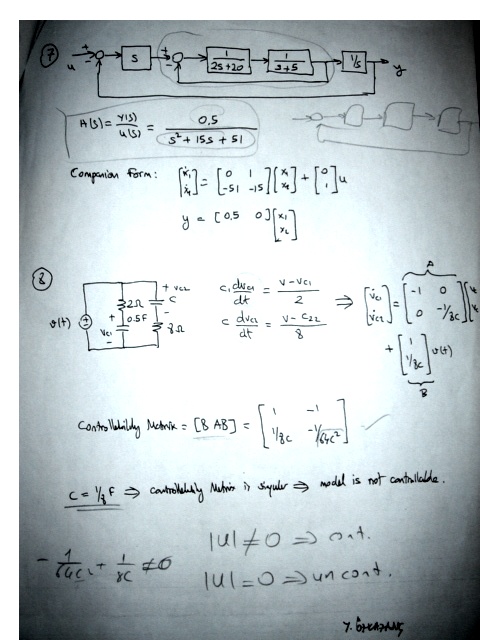 7
u + - + - s 1/(2s+20) 1/(s+5) 1/s y
A(s) = Y(s)/U(s) = 0,5/(s² + 15s + 51)
Companion form: [ẋ₁ ẋ₂] = [0 1 -51 -15] [x₁ x₂] + [0 1] u
y = [0.5 0] [x₁ x₂]
8
v(t) + - 2Ω + 0.5F Vc1 - + Vc2 C - 8Ω
c₁ dvc1/dt = (v - vc1)/2
c dvc2/dt = (v - c22)/8
⇒ [v̇c1 v̇c2] = [-1 0 0 -1/8c] [vc
A
+ [1 1/8c] v(t)
B
Controllability Matrix = [B AB] = [1 -1 1/8c -1/64c²]
c = 1/8 F ⇒ controllability Matrix is singular ⇒ model is not controllable.
|U| ≠ 0 ⇒ cont.
-1/64c² + 1/8c ≠ 0
|U| = 0 ⇒ uncont.